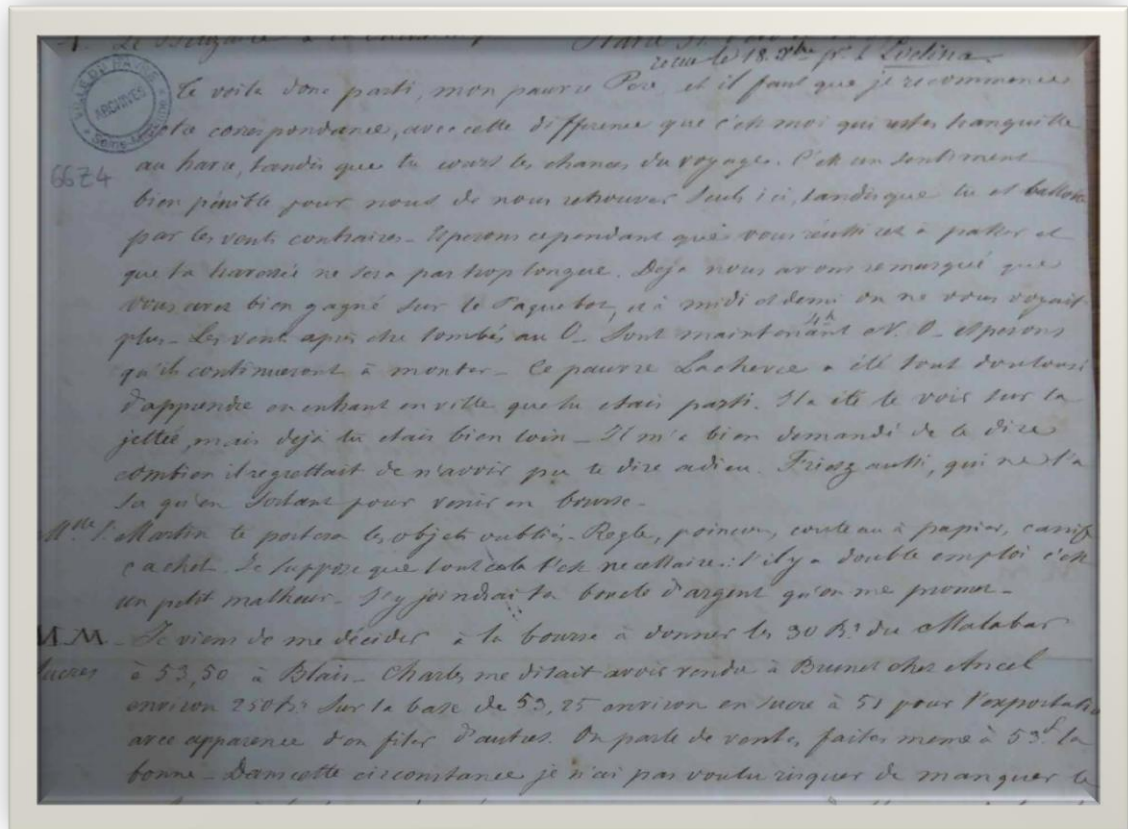 reçue le 18. Xbre pr. l'Evelina
VILLE DU HAVRE
ARCHIVES
66Z4
Te voila donc parti, mon pauvre Père, et il faut que je recommence
notre correspondance, avec cette difference que c'est moi qui reste tranquille
au havre, tandis que tu cours les chances du voyage. C'est un sentiment
bien pénible pour nous de nous retrouver seuls ici, tandis que tu es ballotté
par les vents contraires - Esperons cependant que vous réussirez à passer et
que ta traversée ne sera pas trop longue. Deja nous avons remarqué que
vous avez bien gagné sur le Paquebot, et à midi et demi on ne vous voyait
plus - Les vents après être tombés au O - sont maintenant 4h N. O - esperons
qu'ils continueront à monter - Ce pauvre Lacherce a été tout
d'apprendre en entrant en ville que tu etais parti. Il a été te voir sur la
jettée, mais dejà tu etais bien loin - Il m'a bien demandé de te dire
combien il regrettait de n'avoir pu te dire adieu. aussi, qui ne l'a
su qu'en sortant pour venir en bourse -
Martin te portera les objets oubliés - Regle, poincon, couteau à papier, canif
cachet. Je suppose que tout cela t'est necessaire: s'il y a double emploi c'est
un petit malheur - J'y joindrai ta boucle d'argent qu'on me promet -
M.M. Je viens de me décider à la bourse à donner les 30 Bs. du Malabar
sucres à 53,50 à Blais - Charles me disait avoir vendu à Brunet chez Ancel
environ 250 Bs. sur la base de 53,25 environ en sucre à 51 pour l'exportatio
avec apparence d'en filer d'autres. On parle de ventes faites meme à 53f. la
bonne - Dans cette circonstance je n'ai pas voulu risquer de manquer le